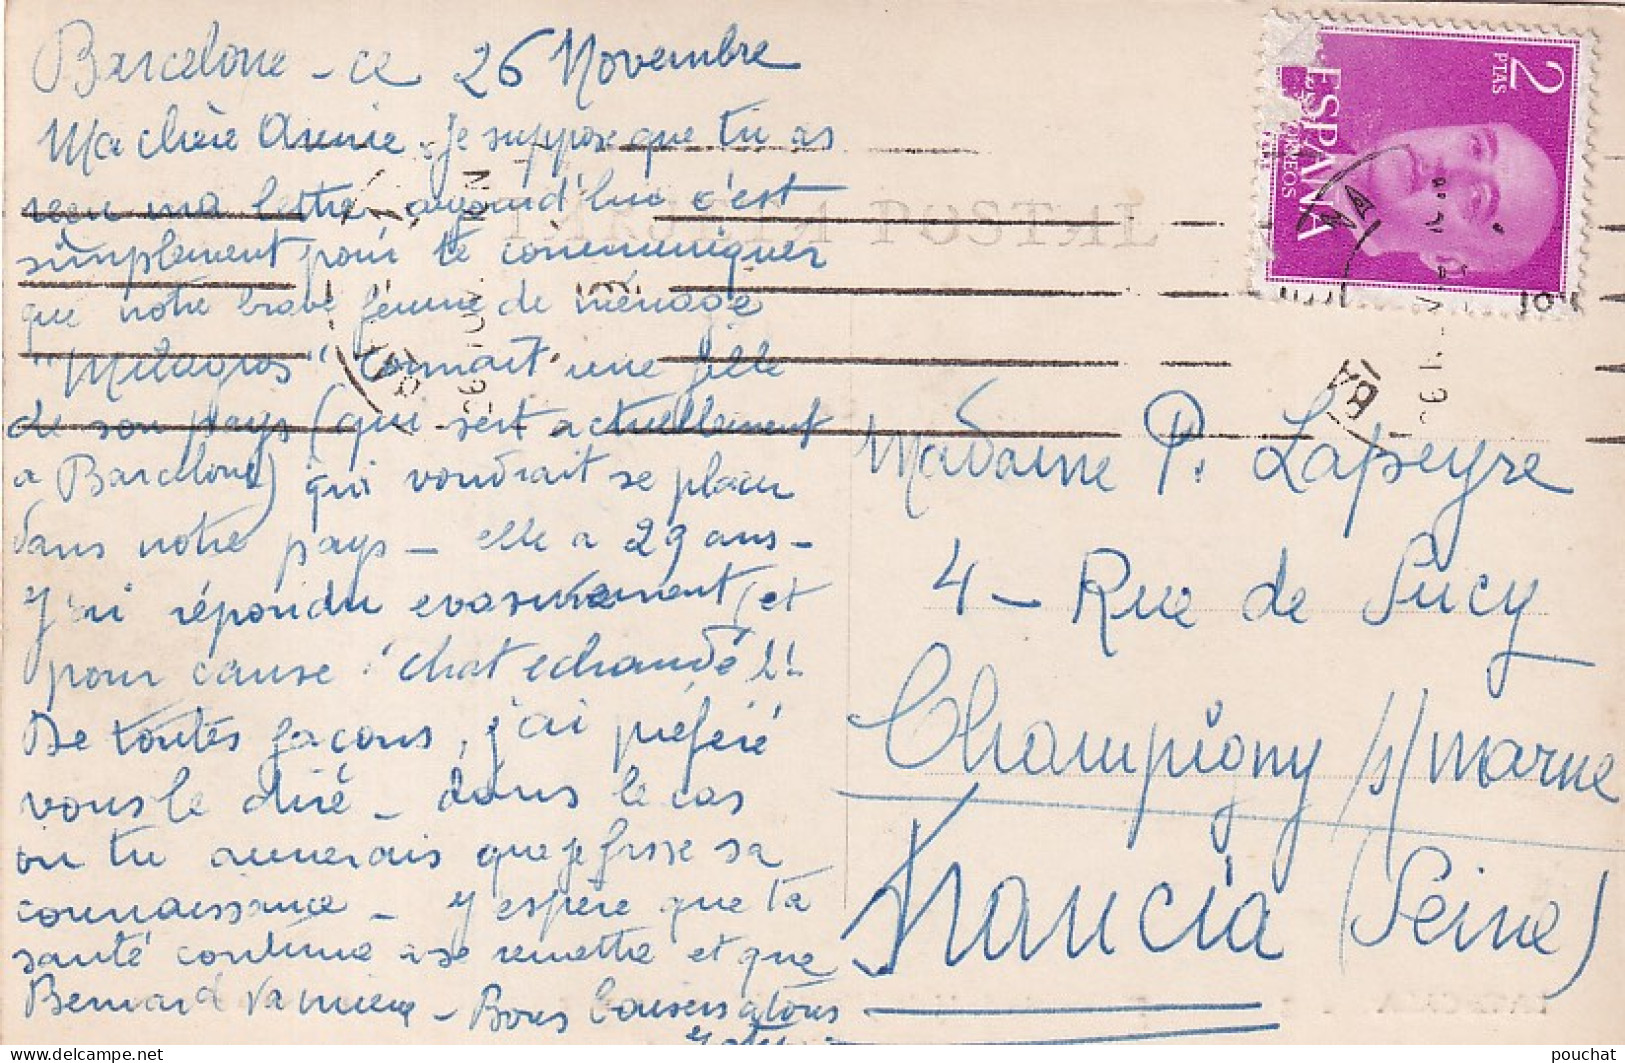 Barcelone - ce 26 Novembre
Ma chère Annie. Je suppose que tu as
reçu ma lettre aujourd'hui c'est
simplement pour te communiquer
que notre brave femme de ménage
"Milagros" connait une fille
de son pays (qui sert actuellement
a Barcelone) qui voudrait se placer
dans notre pays - elle a 29 ans -
J'ai répondu evasivement (et
pour cause ! chat echaudé !!
De toutes façons, j'ai préféré
vous le dire - dans le cas
ou tu aimerais que je fasse sa
connaissance - J'espère que ta
santé continue a se remettre et que
Bernard va mieux - Bons
TARJETA POSTAL
2 PTAS
ESPAÑA
CORREOS
Madame P. Lapeyre
4 - Rue de Sucy
Champigny s/ marne
Francia (Seine)
pouchat